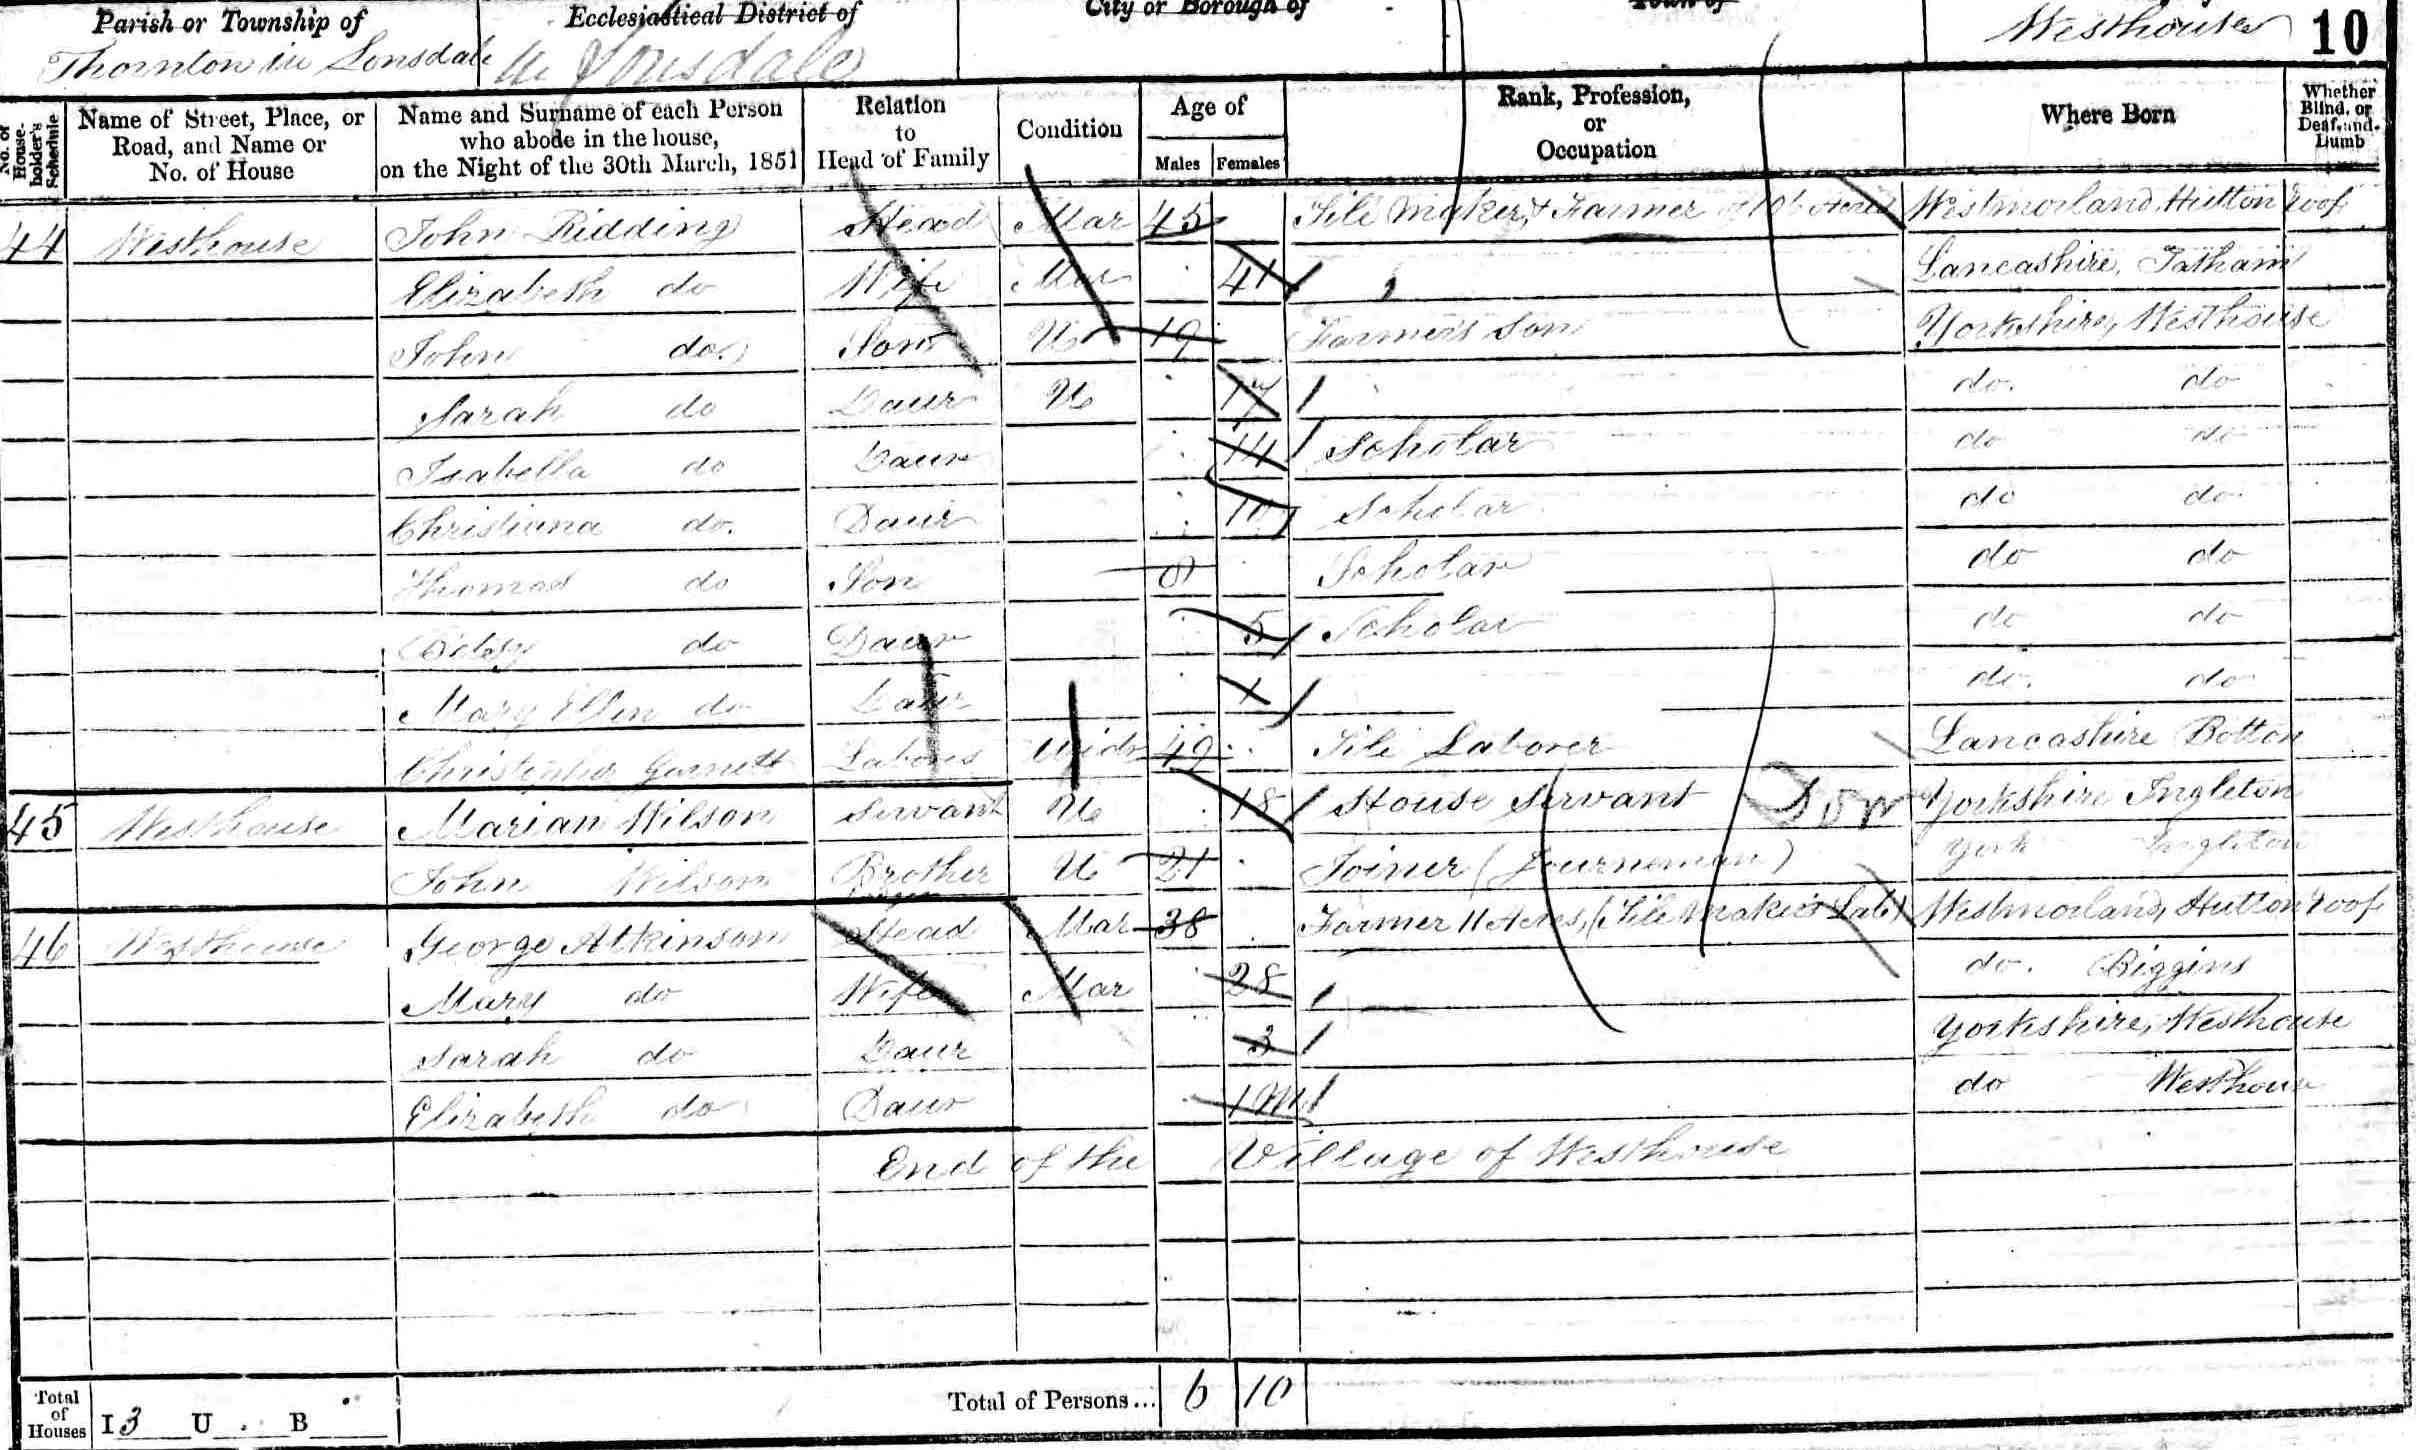 Parish or Township of Ecclesiastical District of City or Borough of Town of
Thornton in Lonsdale Lonsdale Westhouse 10
No. of House-holder's Schedule Name of Street, Place, or Road, and Name or No. of House Name and Surname of each Person who abode in the house, on the Night of the 30th March, 1851 Relation to Head of Family Condition Age of Males Females Rank, Profession, or Occupation Where Born Whether Blind, or Deaf-and-Dumb
44 Westhouse John Ridding Head Mar 45 Tile Maker & Farmer of Acres Westmorland Hutton roof
Elizabeth do Wife Mar 41 Lancashire, Tatham
John do. Son U 19 Farmer's Son Yorkshire, Westhouse
Sarah do Daur U 17 do. do
Isabella do Daur 14 Scholar do do
Christiana do. Daur Scholar do do
Thomas do Son 8 Scholar do do
do Daur 5 Scholar do do
Mary Ellen do Daur 1 do. do
Garnett 49 Tile Laborer Lancashire
45 Westhouse Marian Wilson Servant U 18 House Servant Yorkshire Ingleton
John Wilson Brother U 21 Joiner (Journeman) York Ingleton
46 Westhouse George Atkinson Head Mar 38 Farmer 11 Acres, (Tile Maker's Lab) Westmorland, Hutton roof
Mary do Wife Mar 28 do. Biggins
Sarah do Daur 3 Yorkshire, Westhouse
Elizabeth do Daur 1 M do Westhouse
End of the Village of Westhouse
Total of Houses I 3 U . B Total of Persons... 6 10